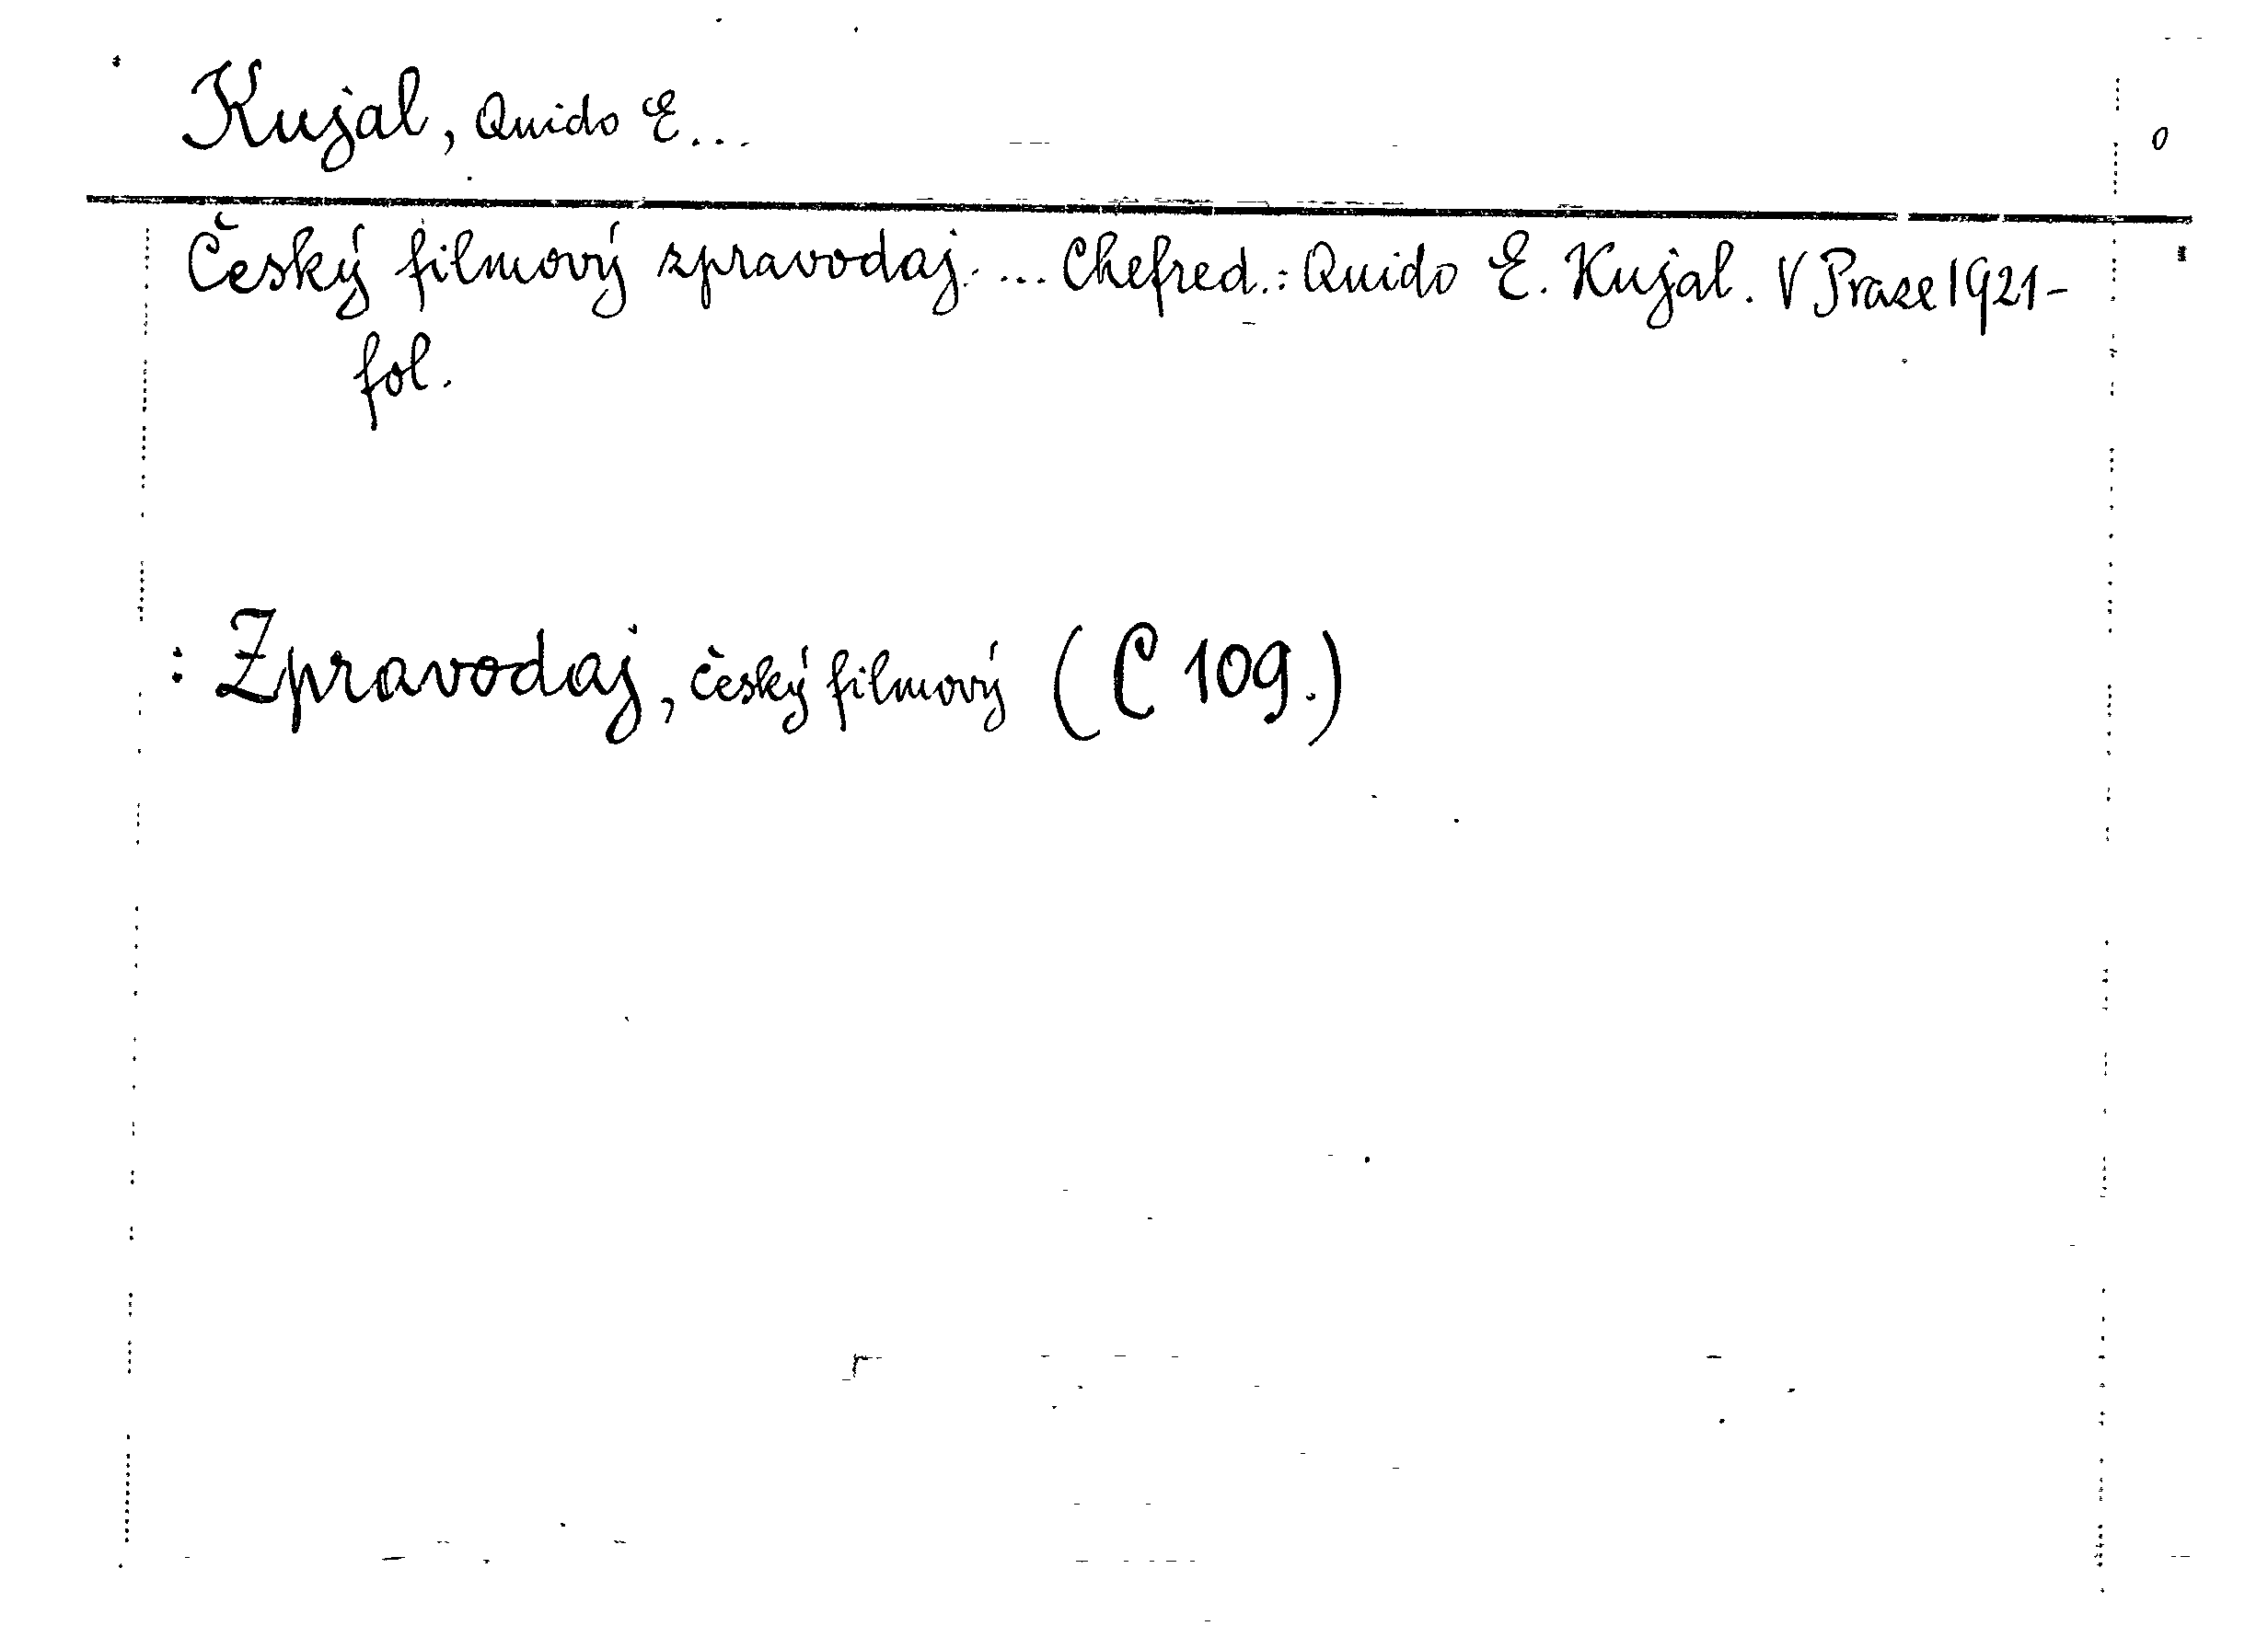 Kujal, Quido E...
Český filmový zpravodaj. ... Chefred.: Quido E. Kujal. V Praze 1921-
fol.
: Zpravodaj, český filmový (C 109.)